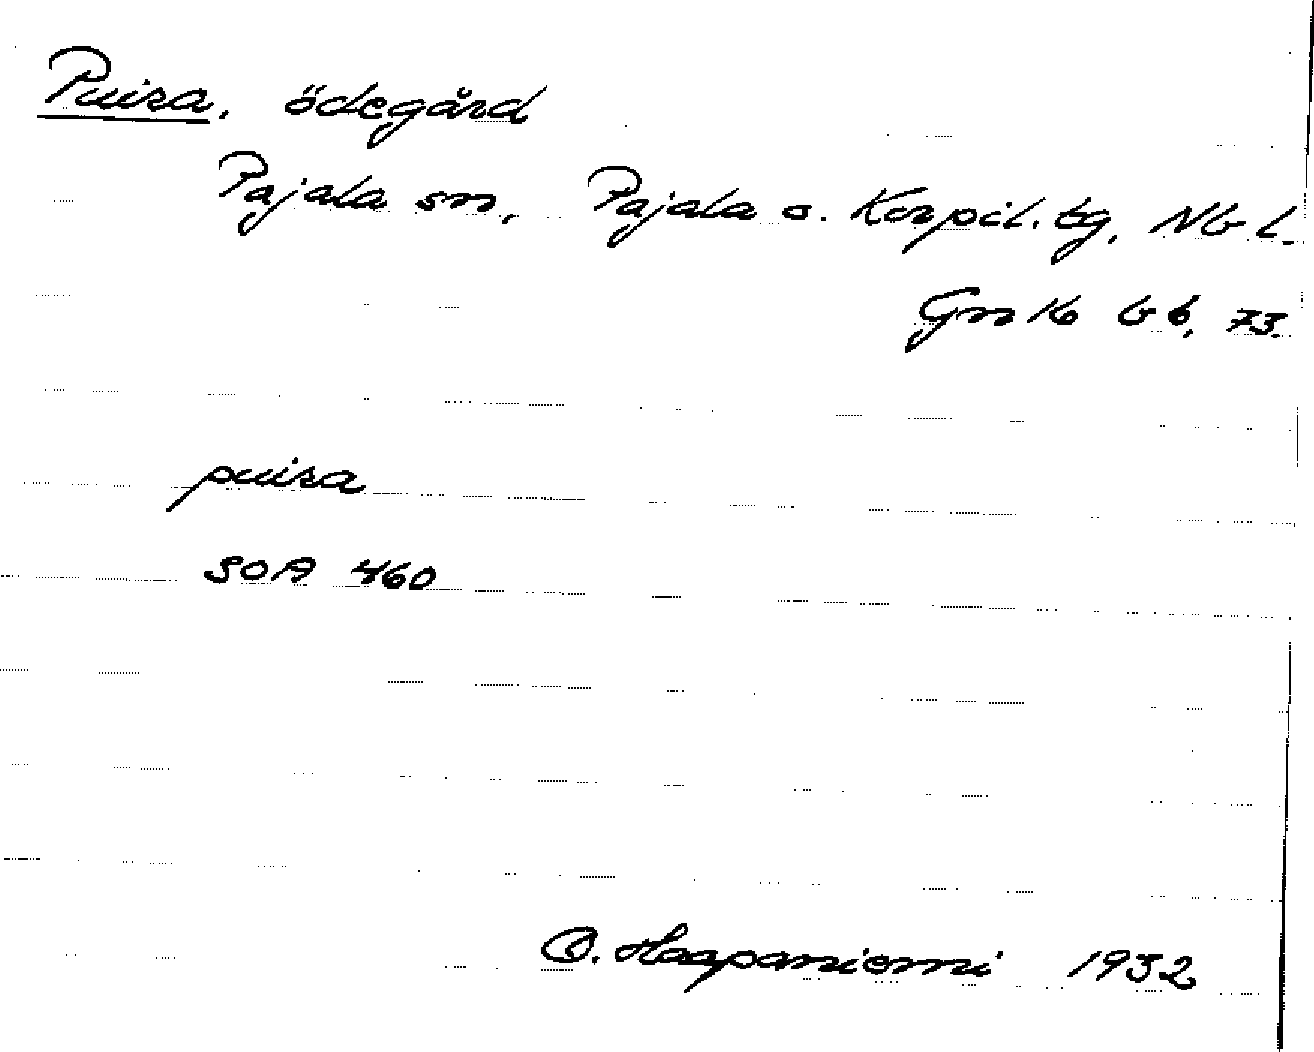 Puira, ödegård
Pajala sn, Pajala o. Korpil. tg, Nb l.
Gnr 16 bb, 73.
puira
SOA 460
O. Haapaniemi 1932